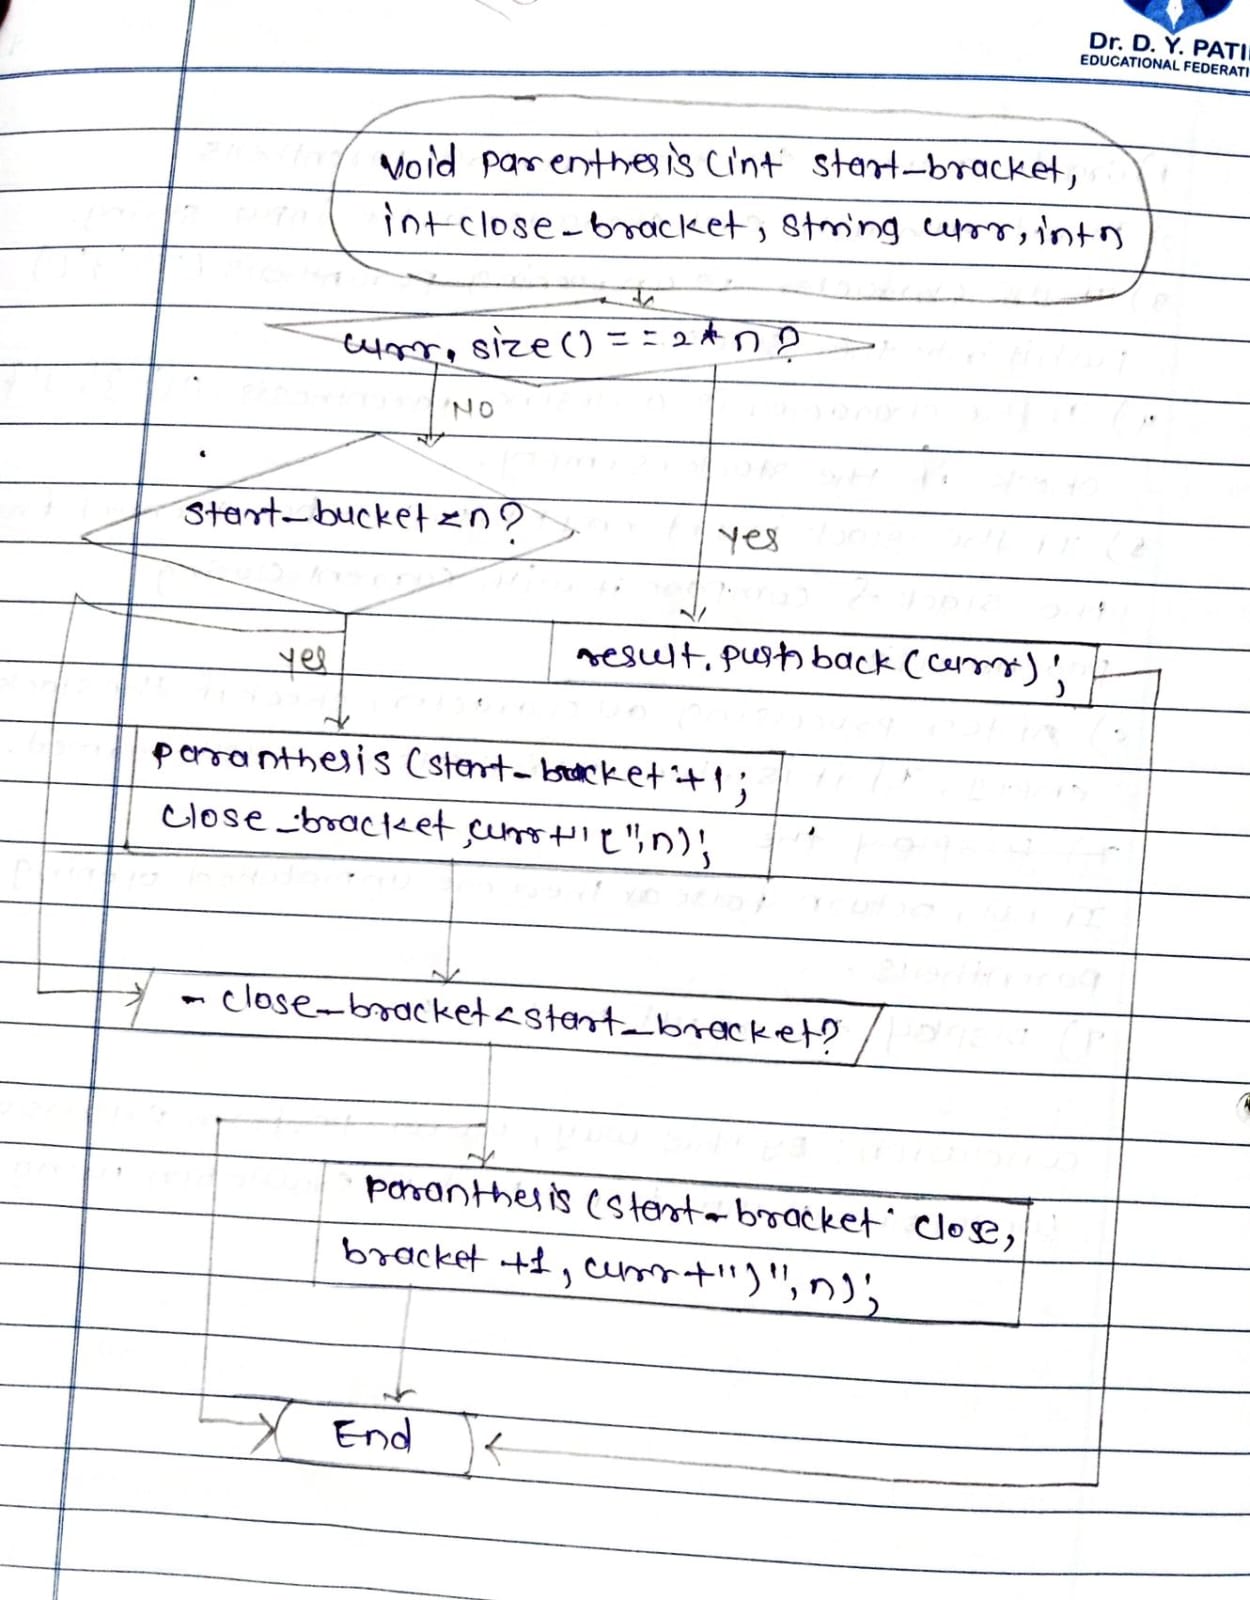 Dr. D. Y. PATI
EDUCATIONAL FEDERATI
void parenthesis (int start-bracket,
int close-bracket, string curr, int n
curr. size() == 2*n?
NO
start-bucket <n?
yes
yes
result. push back (curr);
paranthesis (start-bracket +1;
close-bracket, curr+"(",n);
- close-bracket < start-bracket?
paranthesis (start-bracket close,
bracket +1, curr+")",n);
End